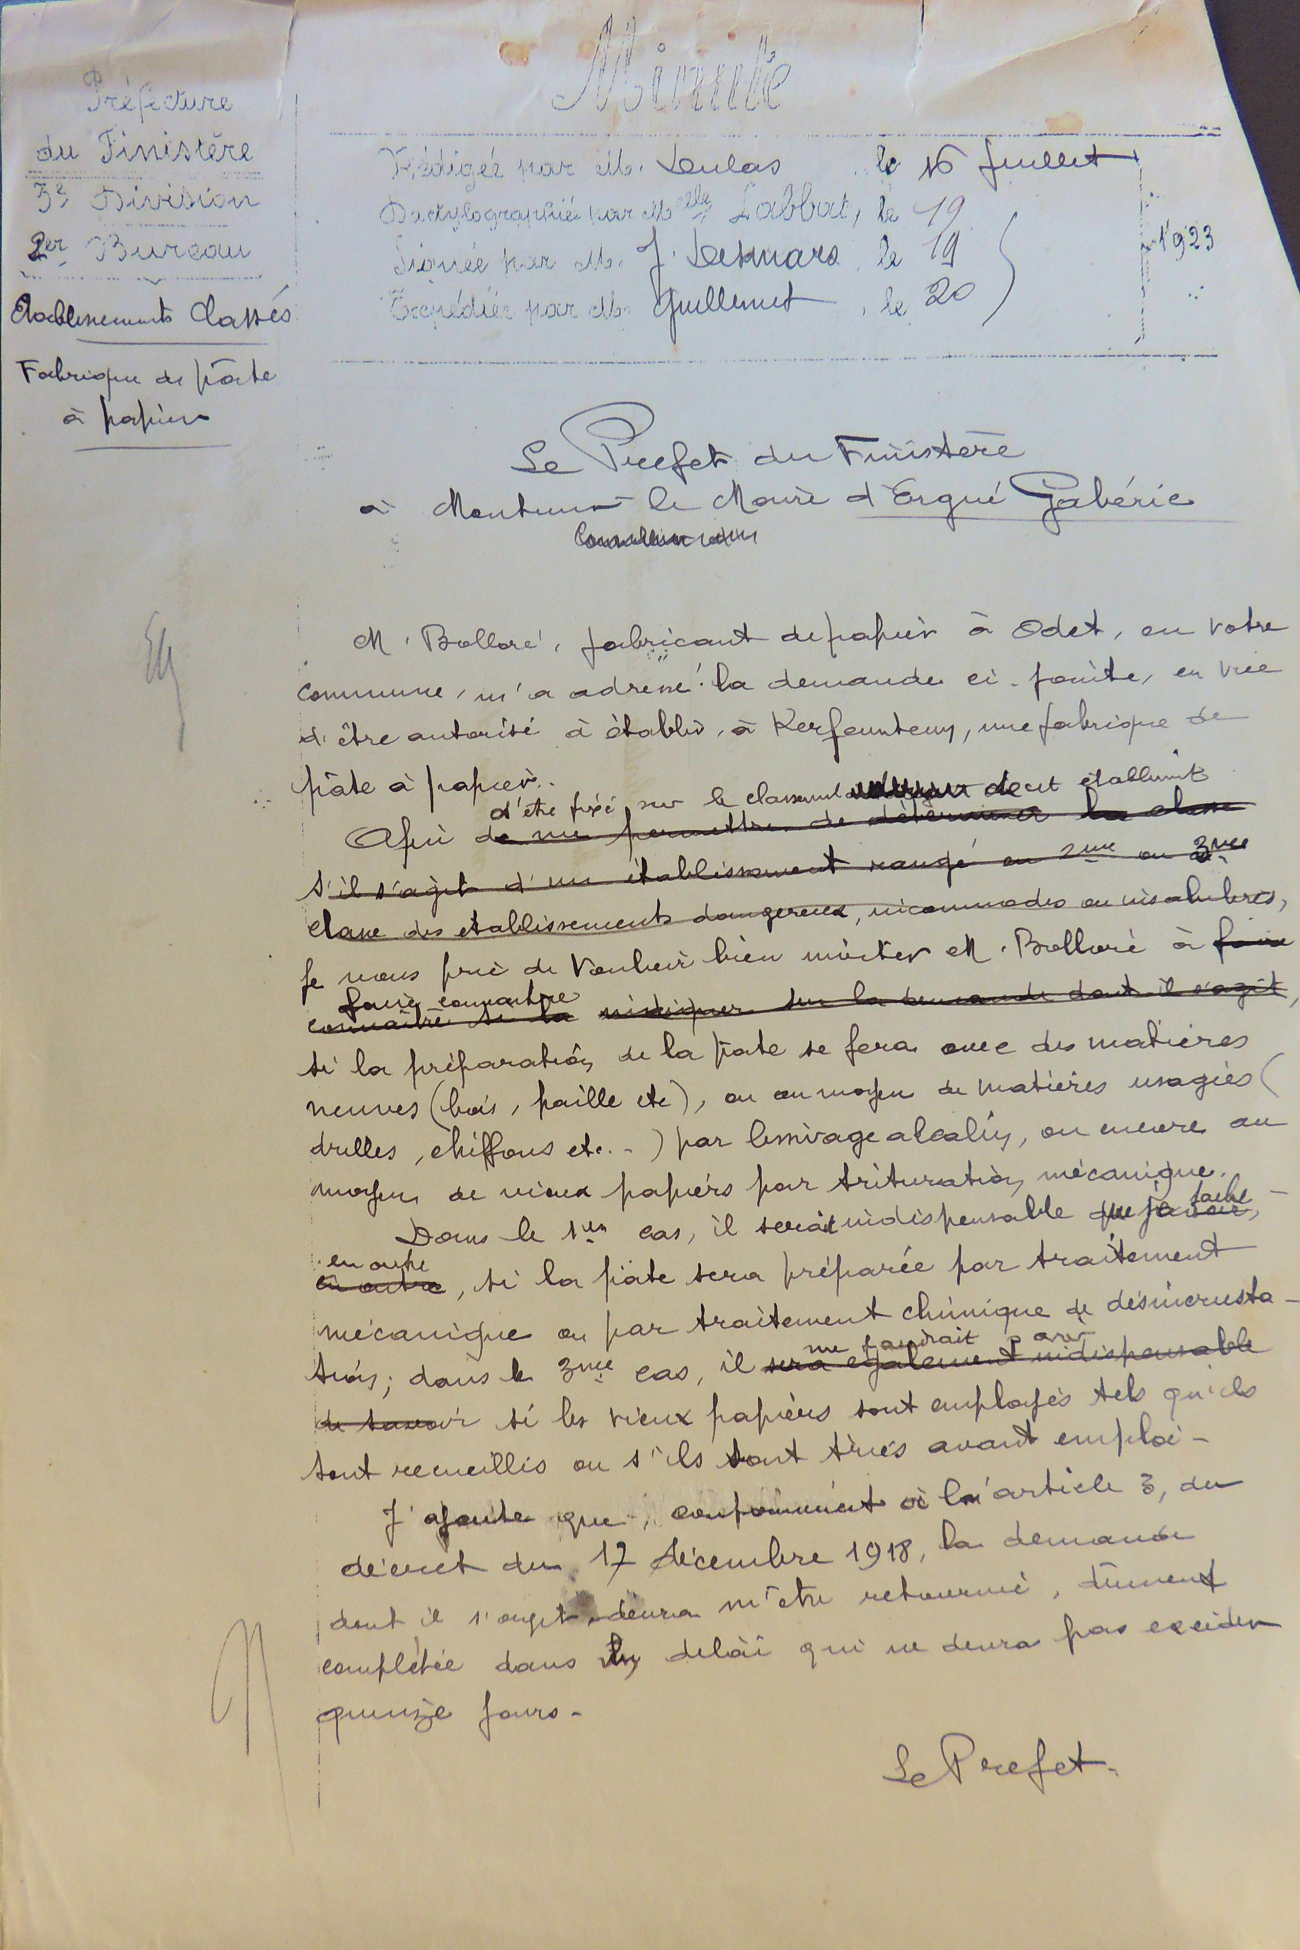 Minute
Préfecture
du Finistère
3e Division
2er Bureau
Etablissements Classés
Fabrique de pâte
à papier
Rédigée par M. le 16 Juillet
Dactylographiée par Melle Labbat, le 19
Signée par M. J. Desmars, le 19
1923
Expédiée par M. Guillemet, le 20
Le Prefet du Finistère
à Monsieur le Maire d'Ergué Gabéric
M. Bolloré, fabricant de papier à Odet, en votre
commune, m'a adressé la demande ci-jointe, en vue
d'être autorisé à établir, à Kerfeunteun, une fabrique de
pâte à papier.
d'être fixé sur le classement de cet établissemt
Afin de me permettre de déterminer la classe
s'il s'agit d'un établissement rangé en 2me ou 3me
classe des établissements dangereux, incommodes ou insalubres,
je vous prie de vouloir bien inviter M. Bolloré à faire
faire connaitre
connaître si la indiquer sur la demande dont il s'agit,
si la préparation de la pâte se fera avec des matières
neuves (bois, paille etc), ou au moyen de matières usagées (
drilles, chiffons etc..) par lessivage alcalin, ou encore au
moyen de vieux papiers par trituration mécanique.
sache
Dans le 1er cas, il serait indispensable que je savoir,
en outre
en outre, si la pâte sera préparée par traitement
mécanique ou par traitement chimique de désincrusta-
me faudrait savoir
tion; dans le 3me cas, il sera également indispensable
de savoir si les vieux papiers sont employés tels qu'ils
sont recueillis ou s'ils sont triés avant emploi-
J'ajoute que, conformément à l'article 3, du
décret du 17 décembre 1918, la demande
dont il s'agit, devra m'être retournée, dûment
complétée dans un délai qui ne devra pas excéder
quinze jours-
Le Prefet.